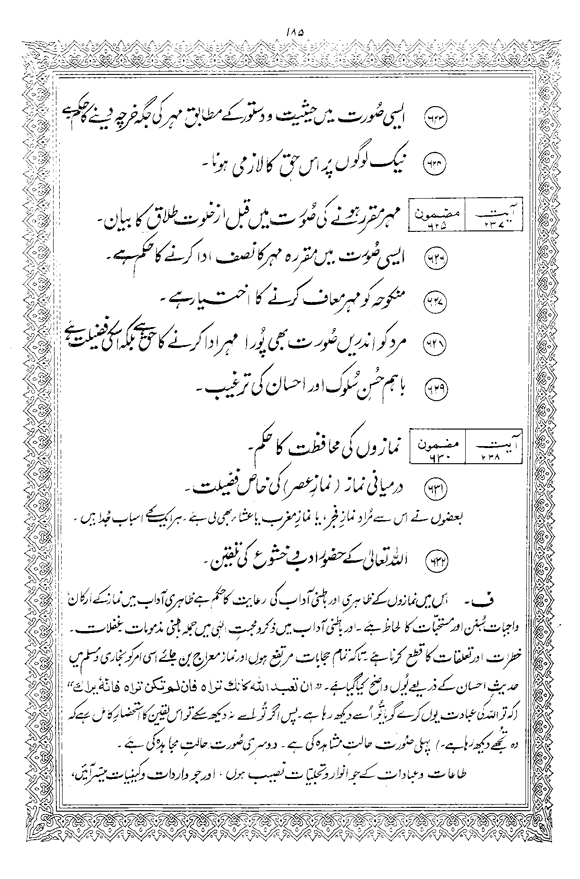 ۱۸۵
۶۲۳ ایسی صُورت میں حیثیت و دستور کے مطابق مہر کی جگہ خرچہ دینے کا حکم ہے
۶۲۴ نیک لوگوں پر اس حق کا لازمی ہونا۔
آیت ۲۳۷ مضمون ۶۲۵ مہر مقرر ہونے کی صُورت میں قبل از خلوت طلاق کا بیان۔
۶۲۶ ایسی صُورت میں مقررہ مہر کا نصف ادا کرنے کا حکم ہے۔
۶۲۷ منکوحہ کو مہر معاف کرنے کا اختیار ہے۔
۶۲۸ مرد کو اندریں صُورت بھی پُورا مہر ادا کرنے کا حق ہے بلکہ اسکی فضیلت ہے
۶۲۹ باہم حُسنِ سُلوک اور احسان کی ترغیب۔
آیت ۲۳۸ مضمون ۶۳۰ نمازوں کی محافظت کا حکم۔
۶۳۱ درمیانی نماز (نمازِ عصر) کی خاص فضیلت۔
بعضوں نے اس سے مُراد نمازِ فجر، یا نمازِ مغرب یا عشاء بھی لی ہے۔ ہر ایک کے اسباب جُدا ہیں۔
۶۳۲ اللہ تعالیٰ کے حضور ادب و خشوع کی تلقین۔
ف۔ اس میں نمازوں کے ظاہری اور باطنی آداب کی رعایت کا حکم ہے ظاہری آداب میں نماز کے ارکان
واجبات سُنن اور مستحبّات کا لحاظ ہے۔ اور باطنی آداب میں ذکر و محبتِ الٰہی میں جملہ باطنی مذمومات غفلات۔
خطرات اور تعلقات کا قطع کرنا ہے تاکہ تمام حجابات مرتفع ہوں اور نماز معراج بن جائے اسی امر کو بخاری و مسلم میں
حدیثِ احسان کے ذریعے یُوں واضح کیا گیا ہے۔ "ان تعبد اللہ کانک تراہ فان لم تکن تراہ فانہ یراک"
(کہ تو اللہ کی عبادت یوں کرے گویا تُو اُسے دیکھ رہا ہے۔ پس اگر تُو اسے نہ دیکھ سکے تو اس یقین کا استحضار کامل ہے کہ
وہ تجھے دیکھ رہا ہے۔) پہلی صُورت حالتِ مشاہدہ کی ہے۔ دوسری صُورت حالتِ مجاہدہ کی ہے۔
طاعات و عبادات کے جو انوار و تجلیات نصیب ہوں، اور جو واردات و کیفیات میسر آئیں،